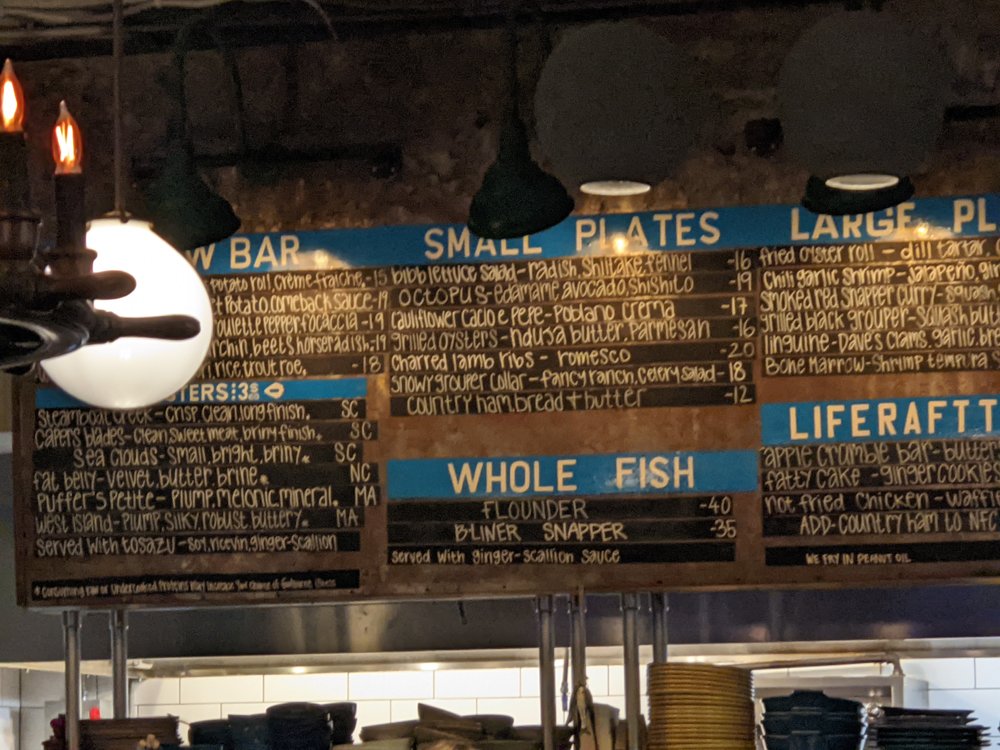 W BAR
potato roll, creme fraiche -15
Potato, comeback sauce -19
oulette pepper focaccia -19
rchin, beets, horseradish -19
rice, trout roe, -18
STERS: 3
Steamboat Creek - crisp, clean, long finish. SC
Capers blades - clean, sweet meat, briny finish. SC
Sea Clouds - small, bright, briny. SC
fat belly - velvet, butter, brine. NC
Puffer's Petite - Plump, melonic, mineral. MA
West Island - Plump, silky, robust, buttery. MA
Served with tosazu - soy, ricevin, ginger-scallion
* Consuming raw or undercooked proteins may increase your chance of foodborne illness
SMALL PLATES
bibb lettuce salad - radish, shiitake, fennel -16
octopus - edamame, avocado, shishito -19
cauliflower cacio e pepe - poblano crema -17
grilled oysters - nduja butter, parmesan -16
charred lamb ribs - romesco -20
snowy grouper collar - fancy ranch, celery salad - 18
country ham, bread + butter -12
WHOLE FISH
FLOUNDER -40
B-LINER SNAPPER -35
served with ginger-scallion sauce
LARGE PL
fried oyster roll - dill tartar
Chili garlic shrimp - jalapeño, gin
smoked red snapper curry - squash
grilled black grouper - squash but
linguine - Dave's clams, garlic br
Bone Marrow - shrimp tempura
LIFERAFT T
apple crumble bar - butter
fatty cake - ginger cookies
not fried chicken - waffl
ADD - country ham to NFC
WE FRY IN PEANUT OIL